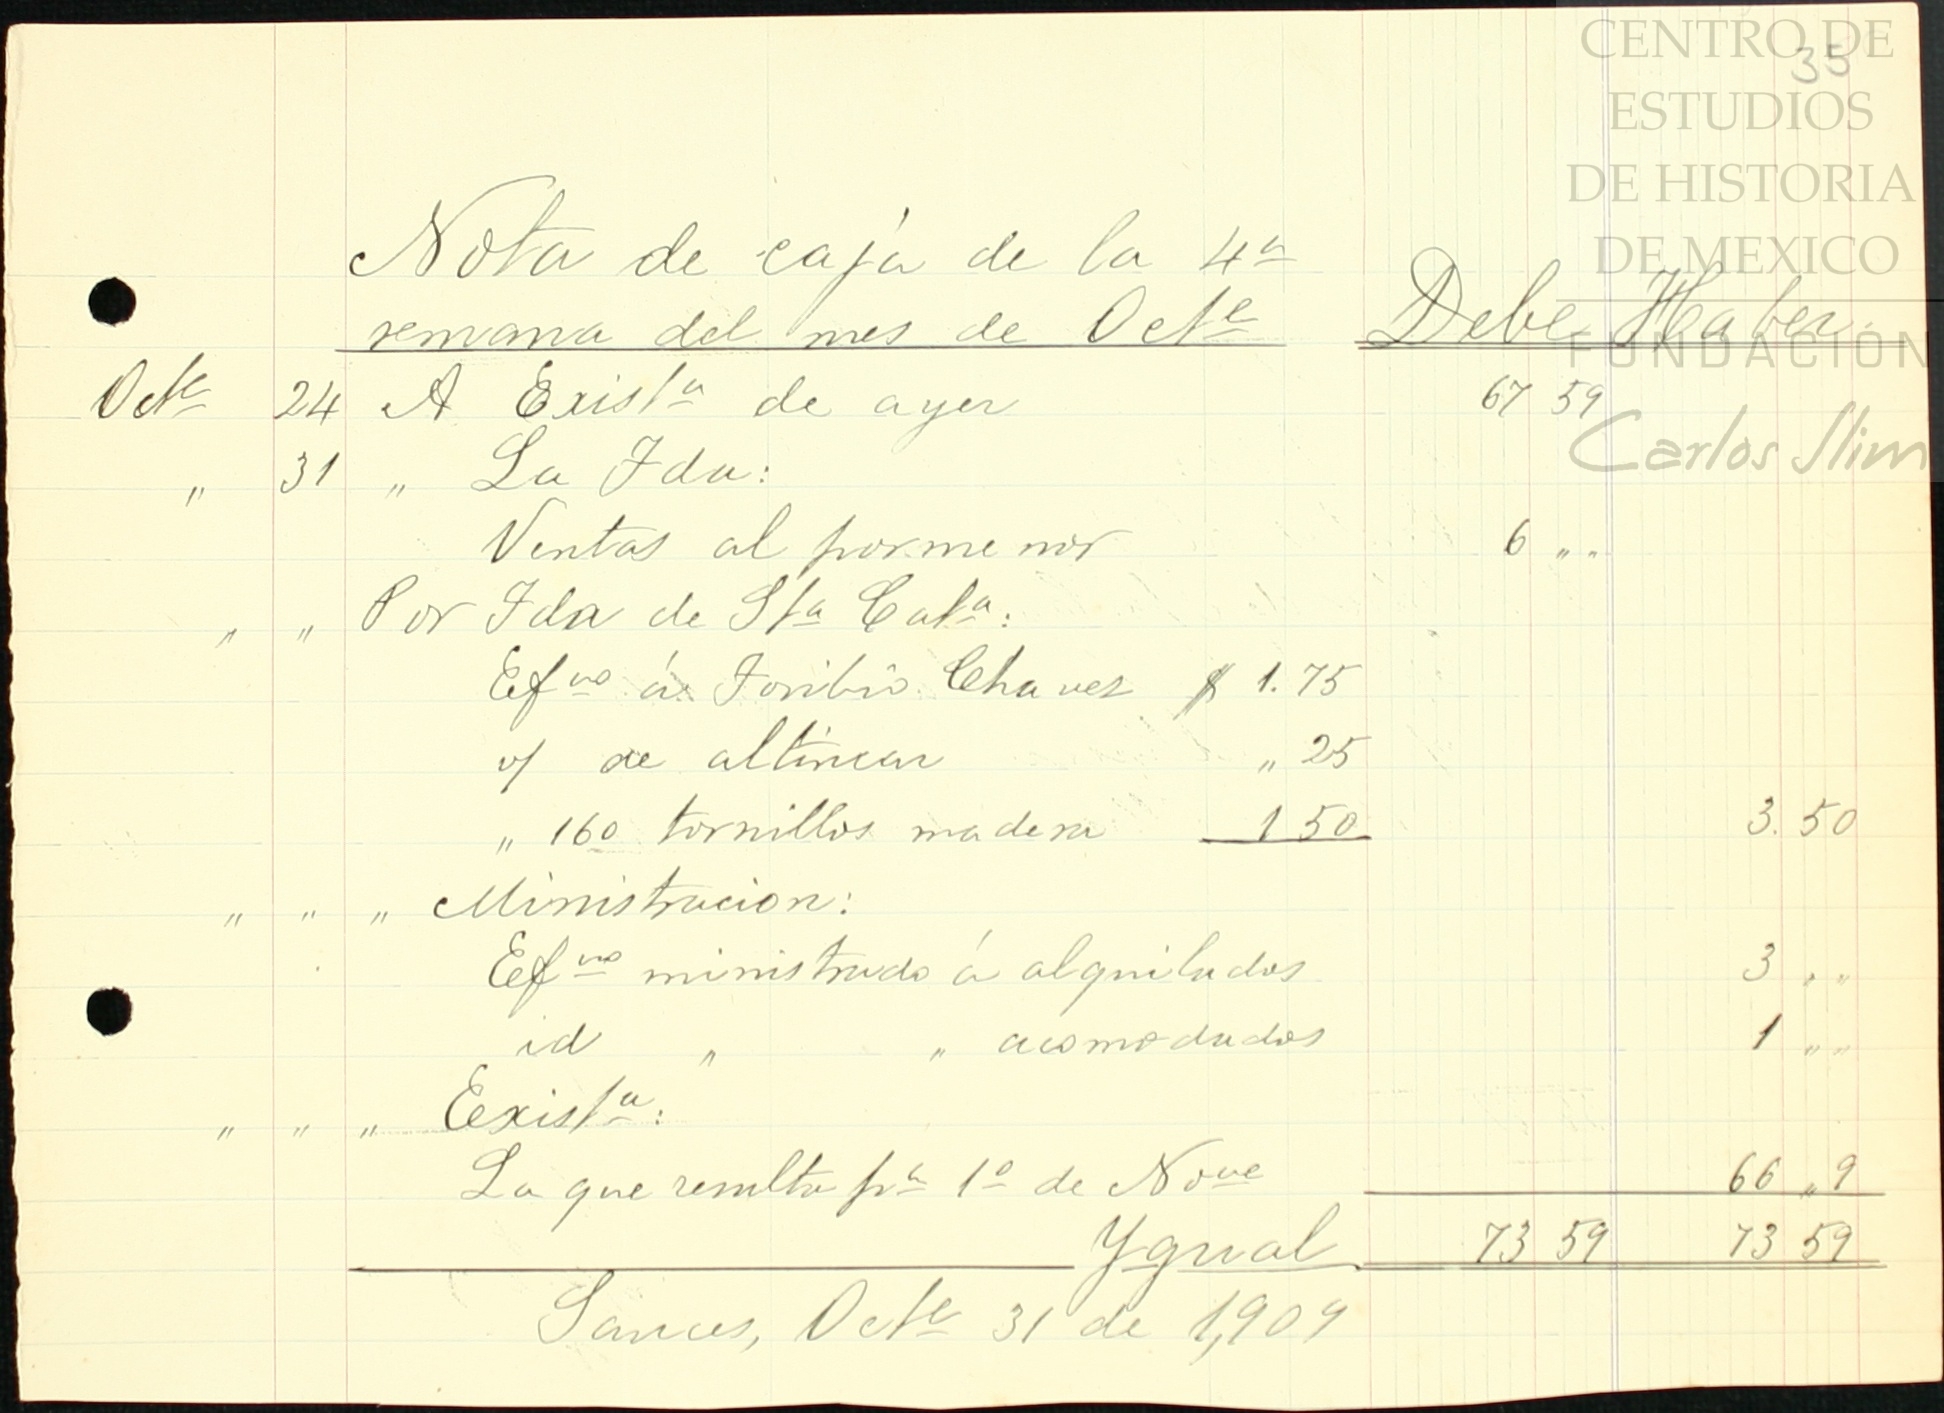 CENTRO DE
ESTUDIOS
DE HISTORIA
DE MEXICO
FUNDACIÓN
Carlos Slim
35
Nota de caja de la 4a
semana del mes de Octe Debe Haber
Octe 24 A Exista de ayer 67 59
" 31 " La Fda:
Ventas al pormenor 6 " "
" " Por Fda de Sta Cata:
Efvo á Toribio Chavez $ 1.75
v/ de altincar " 25
" 160 tornillos madera 1 50 3.50
" " " Ministracion:
Efvo ministrado á alquilados 3 " "
id " " acomodados 1 " "
" " " Exista:
La que resulta pa 1o de Nove 66 " 9
Ygual 73 59 73 59
Octe 31 de 1,909